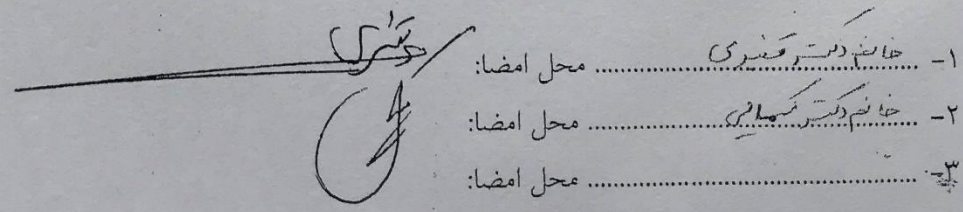 ۱- خانم دکتر قنبری محل امضا:
۲- خانم دکتر کمالی محل امضا:
۳- محل امضا: